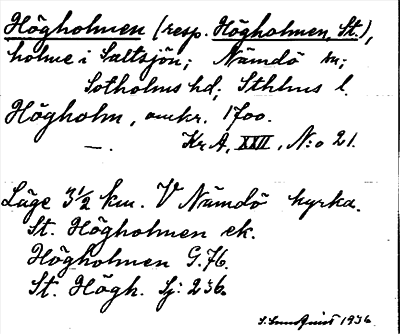 Högholmen (resp. Högholmen, St.),
holme i Saltsjön; Nämdö sn;
Sotholms hd; Sthlms l.
Högholm, omkr. 1700.
— . Kr A, XXII, N:o 21.
Läge 3½ km. V Nämdö kyrka.
St. Högholmen ek.
Högholmen G.76.
St. Högh. Sj: 236.
1936